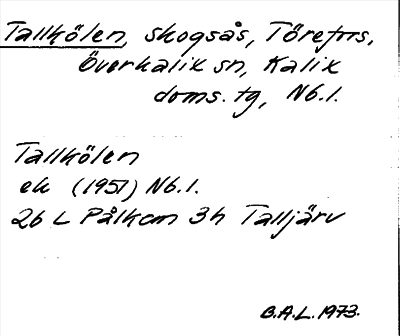 Tallkölen, skogsås, Törefors,
Överkalix sn, Kalix
doms. tg, Nb. l.
Tallkölen
ek (1951) Nb. l.
26 L Pålkem 3h Talljärv
B.A.L. 1973.